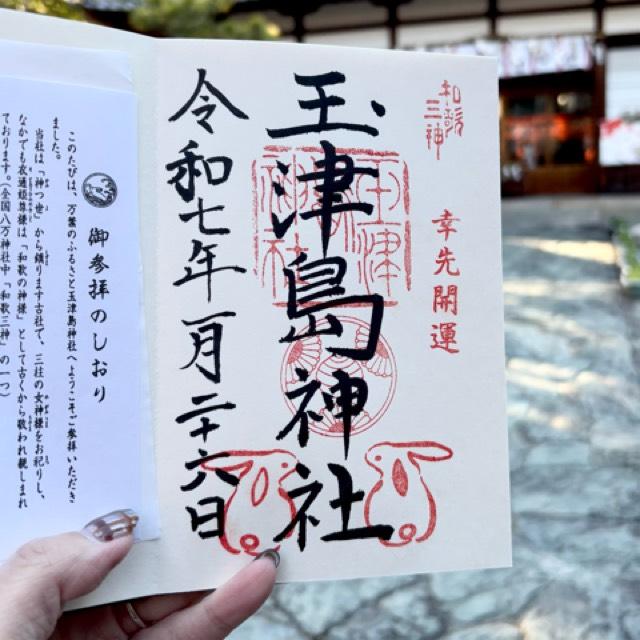 和歌
三神
幸先開運
玉津島神社
令和七年一月二十六日
御参拝のしおり
このたびは、万葉のふるさと玉津島神社へようこそご参拝いただき
ました。
当社は「神つ世」から鎮ります古社で、三柱の女神様をお祀りし、
なかでも衣通姫様は「和歌の神様」として古くから敬われ親しまれ
ております。(全国八万神社中「和歌三神」の一つ)